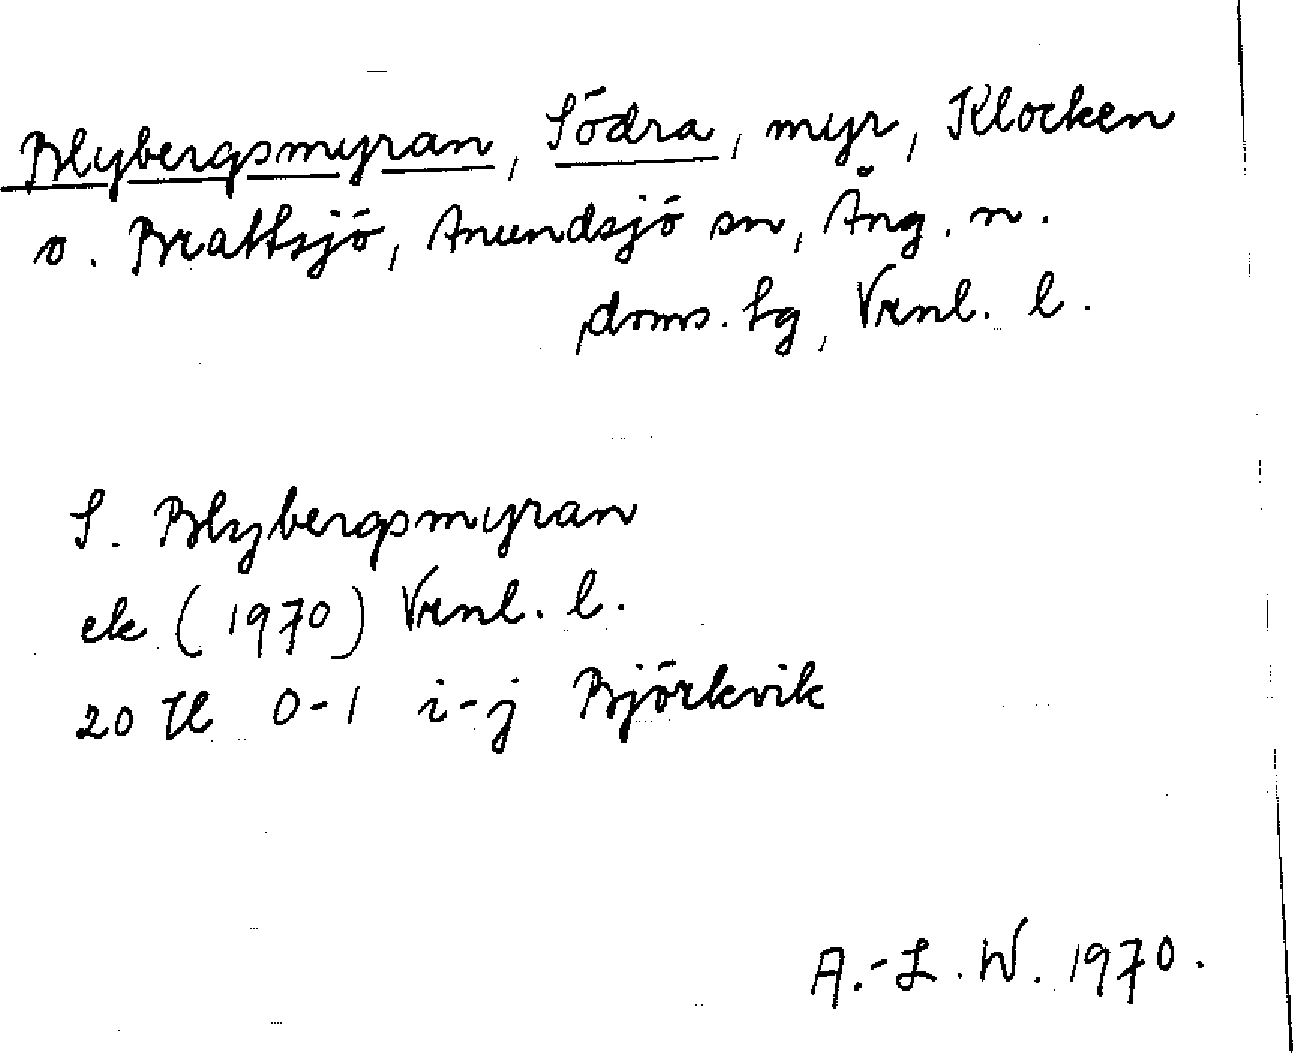 Blybergsmyran, Södra, myr, Klocken
o. Brattsjö, Anundsjö sn, Ång. n.
doms. lg, Vrnl. l.
S. Blybergsmyran
ek (1970) Vrnl. l.
20 H 0-1 i-j Björkvik
A.-L. W. 1970.